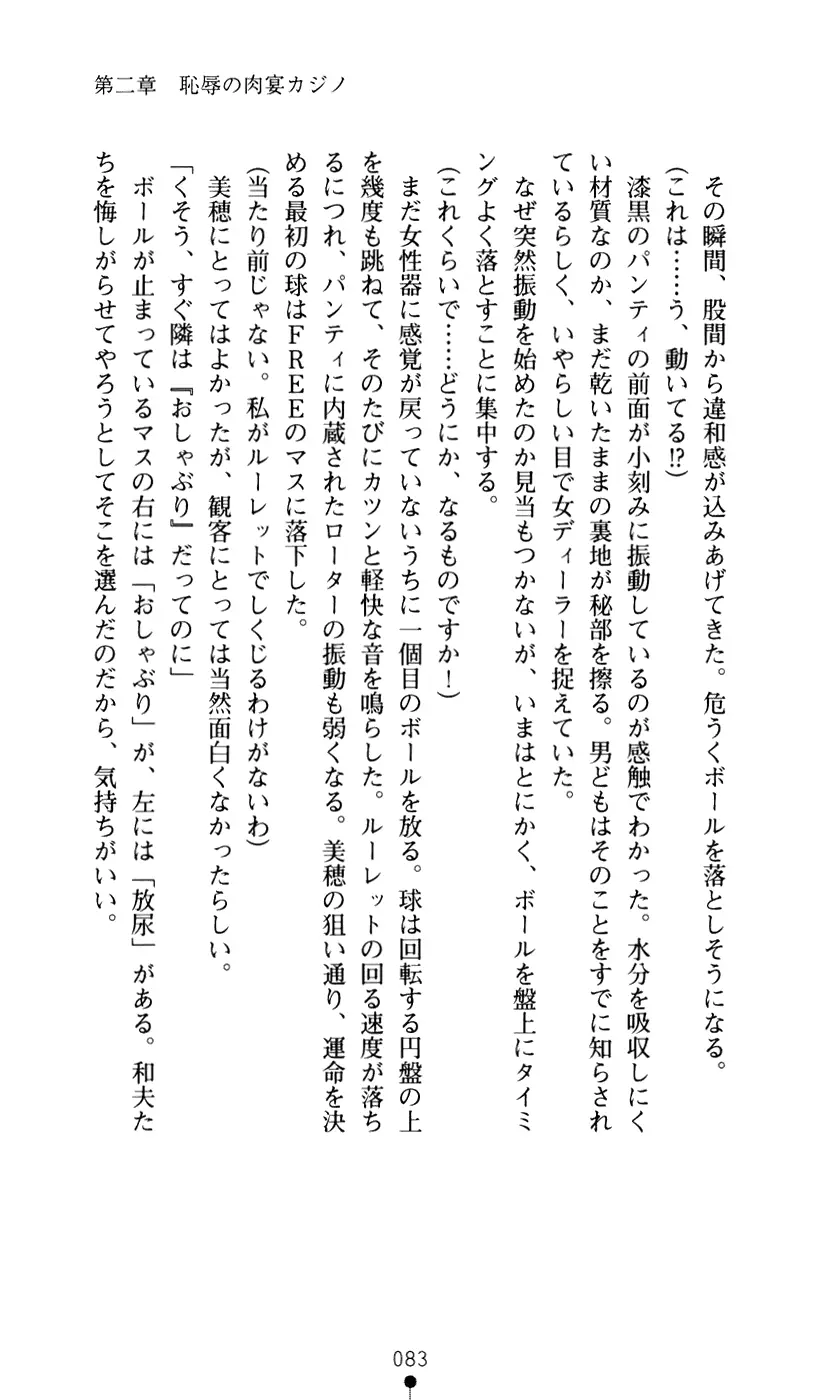 第二章　恥辱の肉宴カジノ
　その瞬間、股間から違和感が込みあげてきた。危うくボールを落としそうになる。
（これは……う、動いてる!?）
　漆黒のパンティの前面が小刻みに振動しているのが感触でわかった。水分を吸収しにく
い材質なのか、まだ乾いたままの裏地が秘部を擦る。男どもはそのことをすでに知らされ
ているらしく、いやらしい目で女ディーラーを捉えていた。
　なぜ突然振動を始めたのか見当もつかないが、いまはとにかく、ボールを盤上にタイミ
ングよく落とすことに集中する。
（これくらいで……どうにか、なるものですか！）
　まだ女性器に感覚が戻っていないうちに一個目のボールを放る。球は回転する円盤の上
を幾度も跳ねて、そのたびにカツンと軽快な音を鳴らした。ルーレットの回る速度が落ち
るにつれ、パンティに内蔵されたローターの振動も弱くなる。美穂の狙い通り、運命を決
める最初の球はＦＲＥＥのマスに落下した。
（当たり前じゃない。私がルーレットでしくじるわけがないわ）
　美穂にとってはよかったが、観客にとっては当然面白くなかったらしい。
「くそう、すぐ隣は『おしゃぶり』だってのに」
　ボールが止まっているマスの右には「おしゃぶり」が、左には「放尿」がある。和夫た
ちを悔しがらせてやろうとしてそこを選んだのだから、気持ちがいい。
083